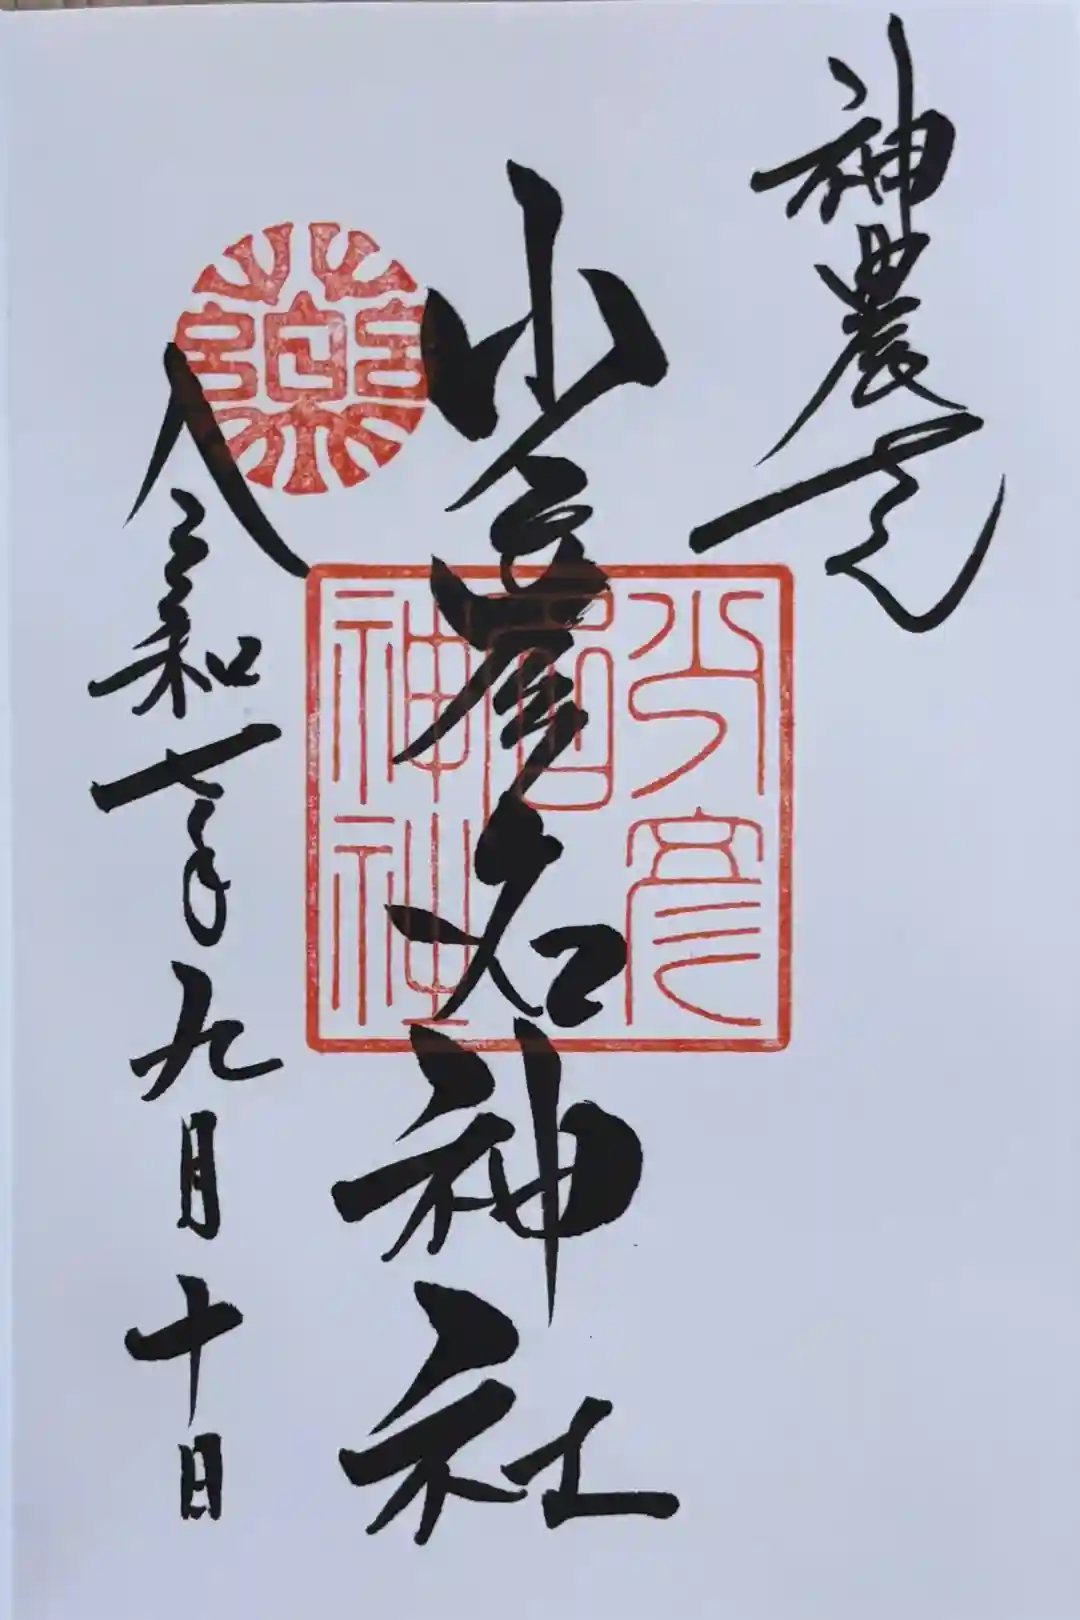 神農さん
少彦名神社
令和七年九月十日
薬
少彦
名
神社